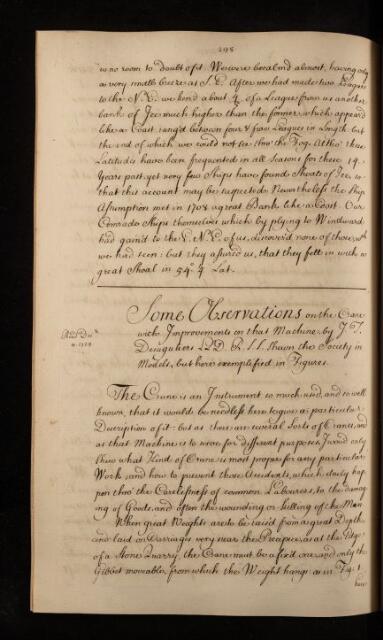 198
is no room to doubt of it. We were becalm'd almost, having only
a very small breeze at S.E. After we had made two Leagues
to the N.E. we found about ¼ of a League from us another
bank of Ice much higher than the former, which appear'd
like a Coast rang'd between four & five Leagues in Length but
the end of which we could not see thro' the Fog. Altho' these
Latitudes have been frequented in all Seasons for these 14
Years past, yet very few Ships have found Shoals of Ice, so
that this account may be suspected. Nevertheless the Ship
Assumption met in 1708 a great Bank like a Coast. Our
Comrade Ships themselves which by plying to Windward
had gain'd to the E.N.E. of us, discover'd none of those wch
we had seen: but they assured us, that they fell in with a
great Shoal in 54°. ¼ Lat.
Some Observations on the Crane
with Improvements on that Machine by J. T.
Desaguliers LL.D. F.R.S. Shewn the Society in
Models, but here exemplified in Figures.
Read
The Crane is an Instrument so much used, and so well
known, that it would be needless here to give a particular
Description of it: but as there are several Sorts of Cranes, and
as that Machine is to serve for different purposes, I would only
shew what Kind of Crane is most proper for any particular
Work, and how to prevent those Accidents, which daily hap
pen thro' the Carelesness of common Labourers, to the damag
ing of Goods, and often the wounding or killing of the Men.
When great Weights are to be raised from a great Depth
and laid on Carriages very near the Precipice, as at the Edge
of a Stone Quarry, the Crane must be a fix'd one, and only the
Gibbet moveable, from which the Weight hangs as in Fig. 1.